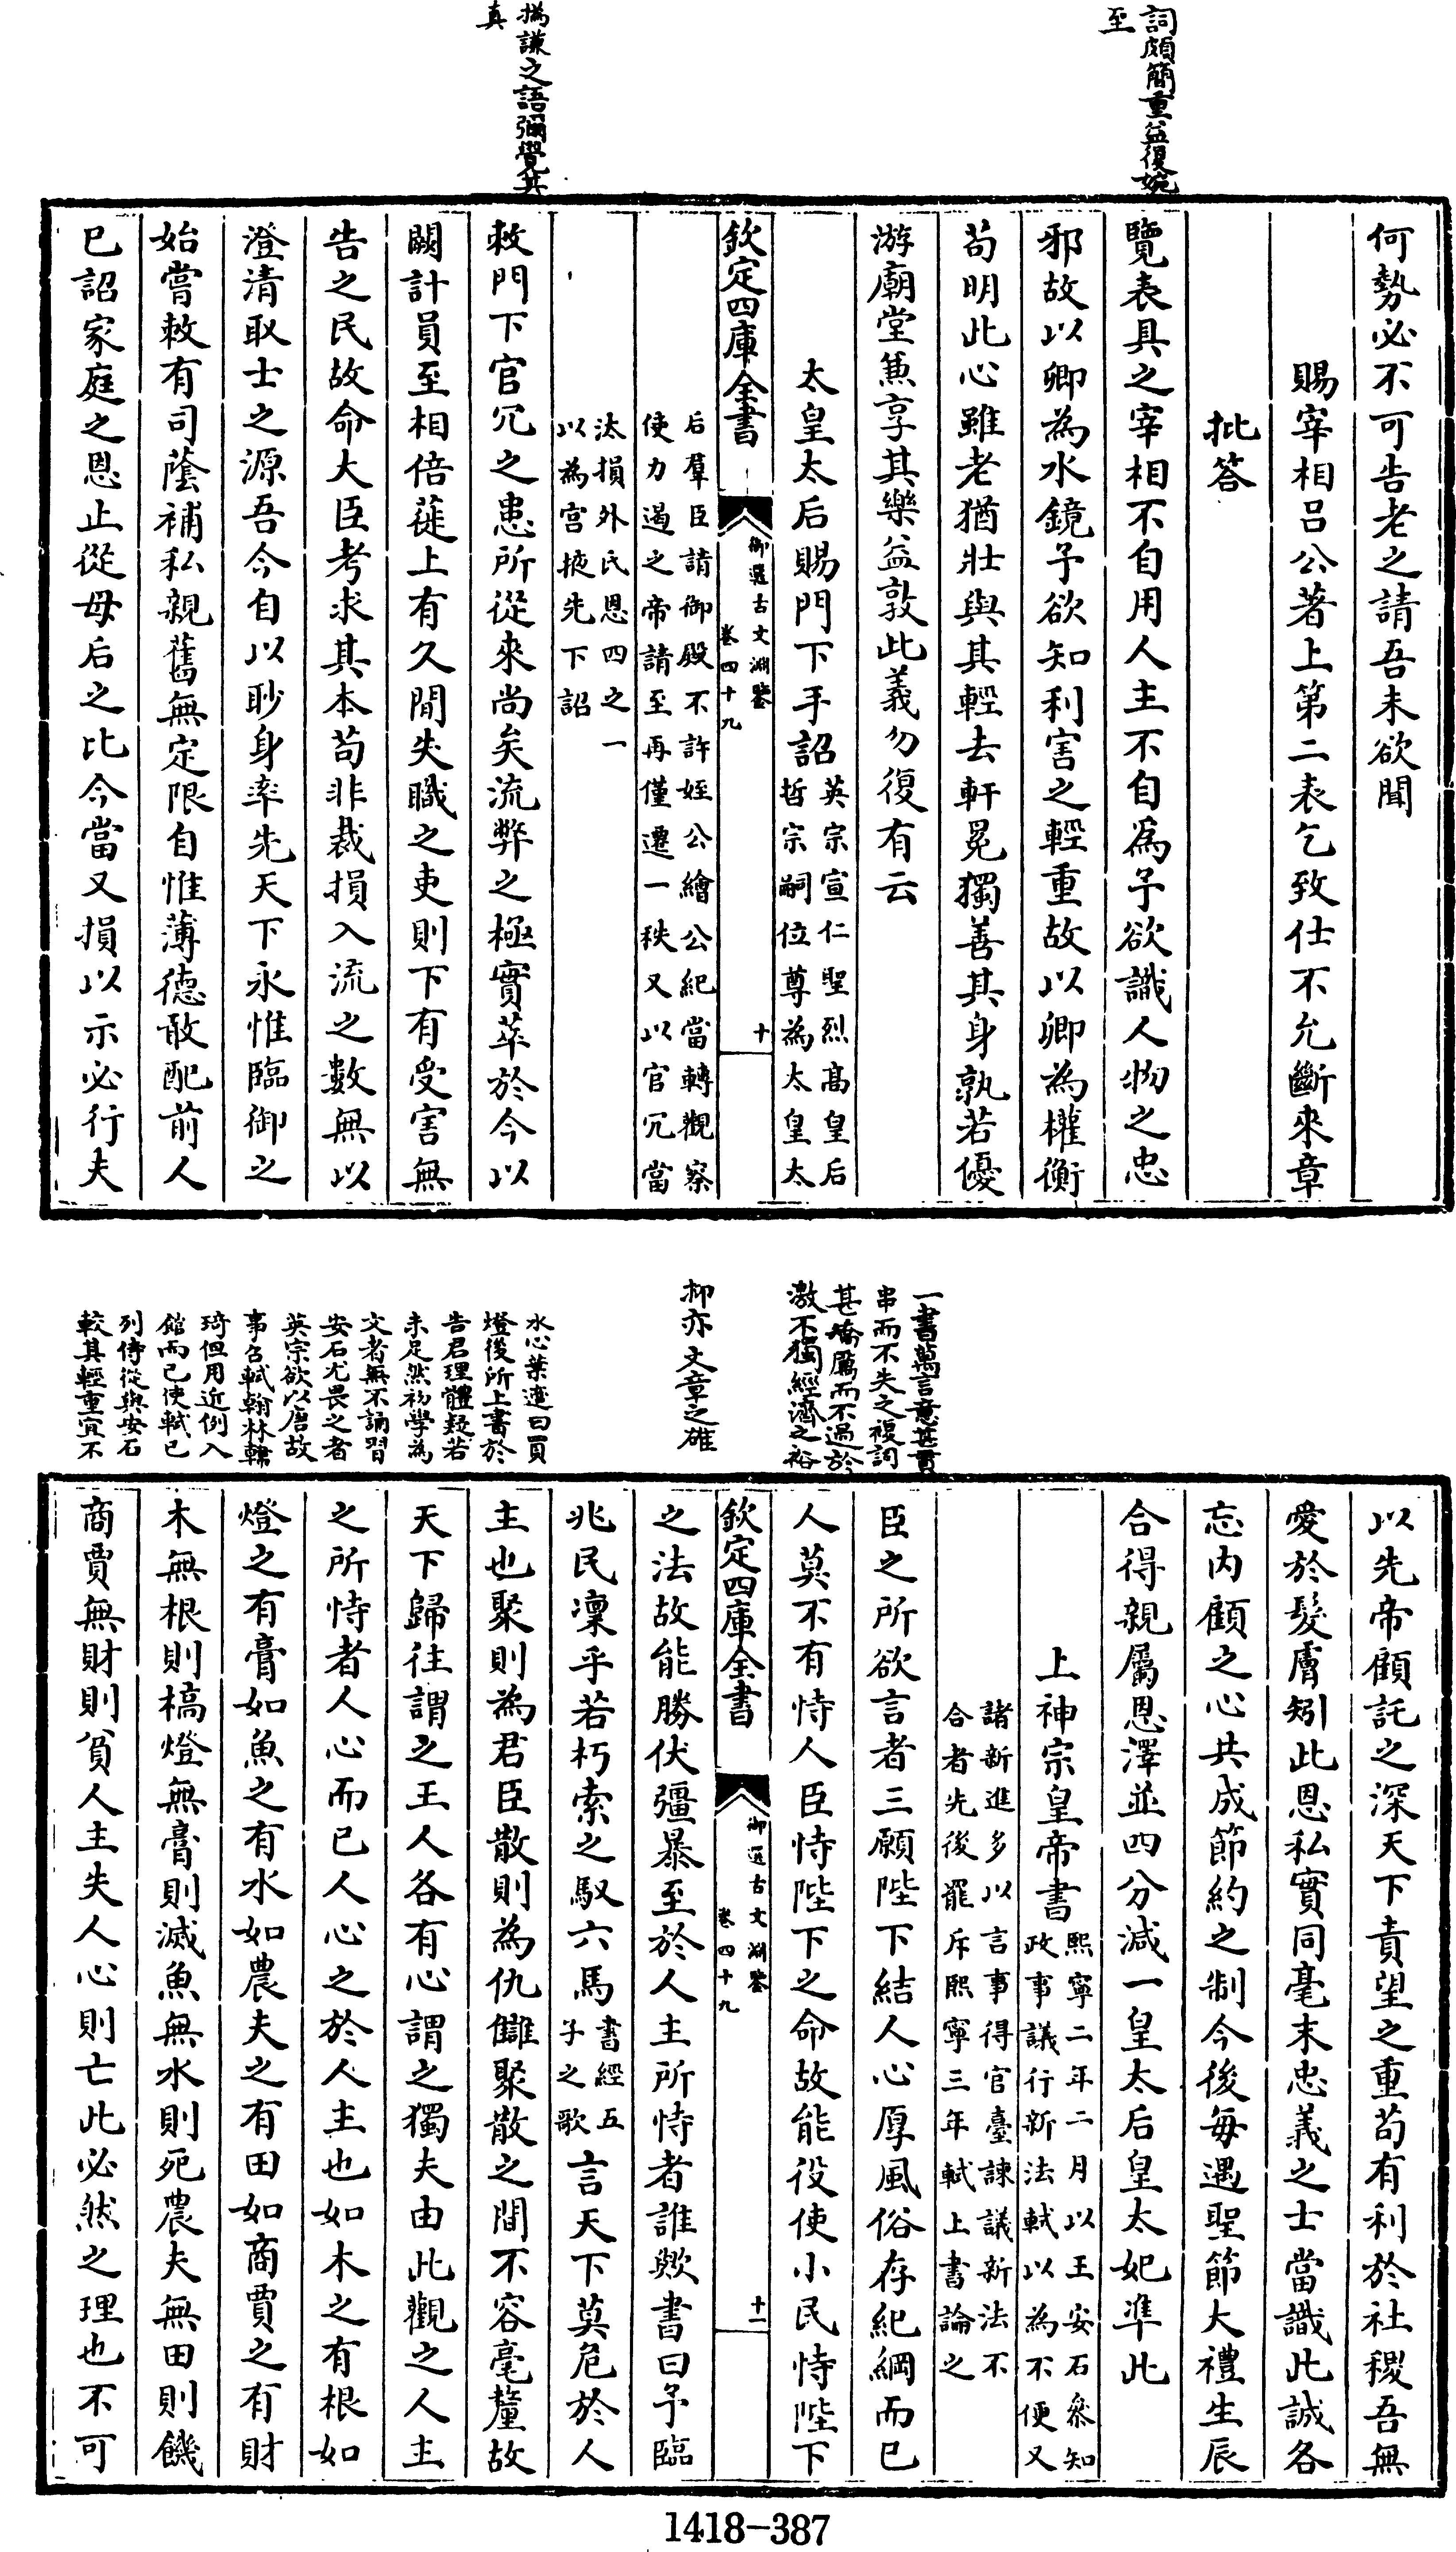 詞頗簡重益復婉
至
撝謙之語彌覺其
真
何勢必不可告老之請吾未欲聞
賜宰相呂公著上第二表乞致仕不允斷來章
批答
覽表具之宰相不自用人主不自為予欲識人物之忠
邪故以卿為水鏡予欲知利害之輕重故以卿為權衡
茍明此心雖老猶壯與其輕去軒冕獨善其身孰若優
游廟堂兼享其樂益敦此義勿復有云
太皇太后賜門下手詔
英宗宣仁聖烈高皇后
哲宗嗣位尊為太皇太
欽定四庫全書
御選古文淵鑒
卷四十九
十
后羣臣請御殿不許姪公繪公紀當轉觀察
使力遏之帝請至再僅遷一秩又以官冗當
汰損外氏恩四之一
以為宮掖先下詔
敕門下官冗之患所從來尚矣流弊之極實萃於今以
闕計員至相倍蓰上有久閒失職之吏則下有受害無
告之民故命大臣考求其本茍非裁損入流之數無以
澄清取士之源吾今自以眇身率先天下永惟臨御之
始嘗敕有司蔭補私親舊無定限自惟薄德敢配前人
已詔家庭之恩止從母后之比今當又損以示必行夫
一書萬言意甚貫
串而不失之複詞
甚嬌厲而不過於
激不獨經濟之裕
抑亦文章之雄
水心葉適曰買
燈後所上書於
告君理體疑若
未足然初學為
文者無不誦習
安石尤畏之者
英宗欲以唐故
事召軾翰林韓
琦但用近例入
館而已使軾已
列侍從與安石
較其輕重宜不
以先帝顧託之深天下責望之重茍有利於社稷吾無
愛於髮膚矧此恩私實同毫末忠義之士當識此誠各
忘內顧之心共成節約之制今後每遇聖節大禮生辰
合得親屬恩澤並四分減一皇太后皇太妃準此
上神宗皇帝書
熙寧二年二月以王安石參知
政事議行新法軾以為不便又
諸新進多以言事得官臺諫議新法不
合者先後罷斥熙寧三年軾上書論之
臣之所欲言者三願陛下結人心厚風俗存紀綱而已
人莫不有恃人臣恃陛下之命故能役使小民恃陛下
欽定四庫全書
御選古文淵鑒
卷四十九
十一
之法故能勝伏彊暴至於人主所恃者誰歟書曰予臨
兆民凜乎若朽索之馭六馬
書經五
子之歌
言天下莫危於人
主也聚則為君臣散則為仇讎聚散之間不容毫釐故
天下歸往謂之王人各有心謂之獨夫由此觀之人主
之所恃者人心而已人心之於人主也如木之有根如
燈之有膏如魚之有水如農夫之有田如商賈之有財
木無根則槁燈無膏則滅魚無水則死農夫無田則饑
商賈無財則貧人主失人心則亡此必然之理也不可
1418-387